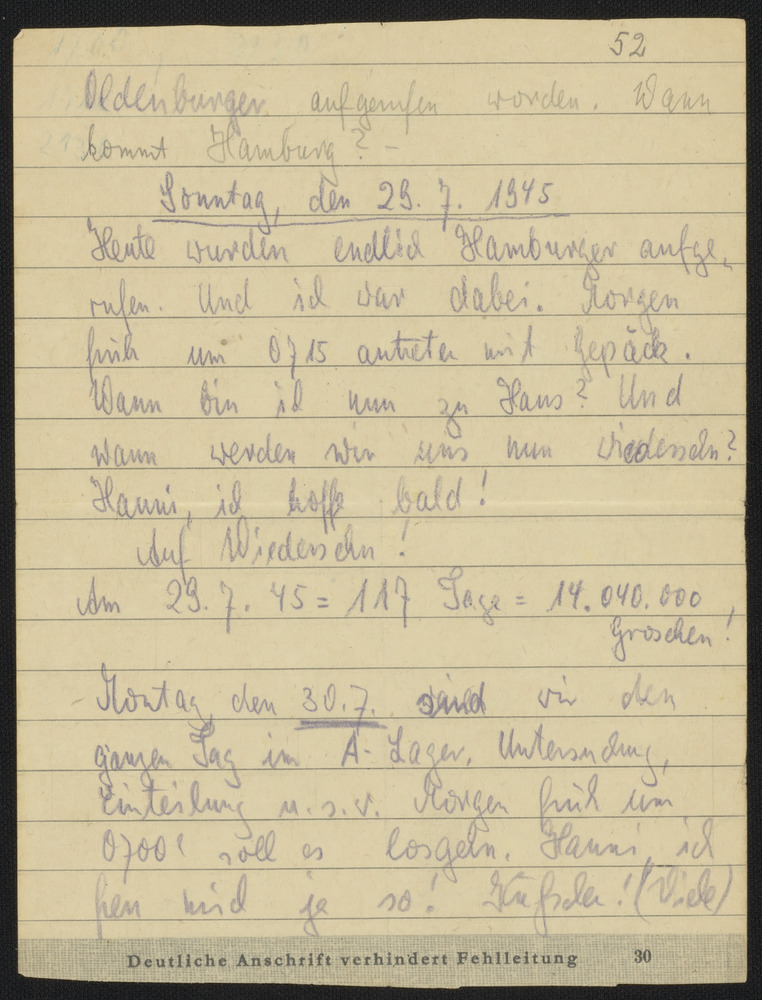 52
Oldenburger aufgerufen worden. Wann
kommt Hamburg? -
Sonntag, den 29. 7. 1945
Heute wurden endlich Hamburger aufge-
rufen. Und ich war dabei. Morgen
früh um 0715 antreten mit Gepäck.
Wann bin ich nun zu Haus? Und
wann werden wir uns nun wiedersehn?
Hanni, ich hoffe bald!
Auf Wiedersehn!
Am 29. 7. 45 = 117 Tage = 14.040.000
Groschen!
Montag, den 30.7. sind wir den
ganzen Tag im A-Lager. Untersuchung,
Einteilung u.s.w. Morgen früh um
0700 soll es losgehn. Hanni, ich
freu mich ja so! (Viele)
Deutliche Anschrift verhindert Fehlleitung 30